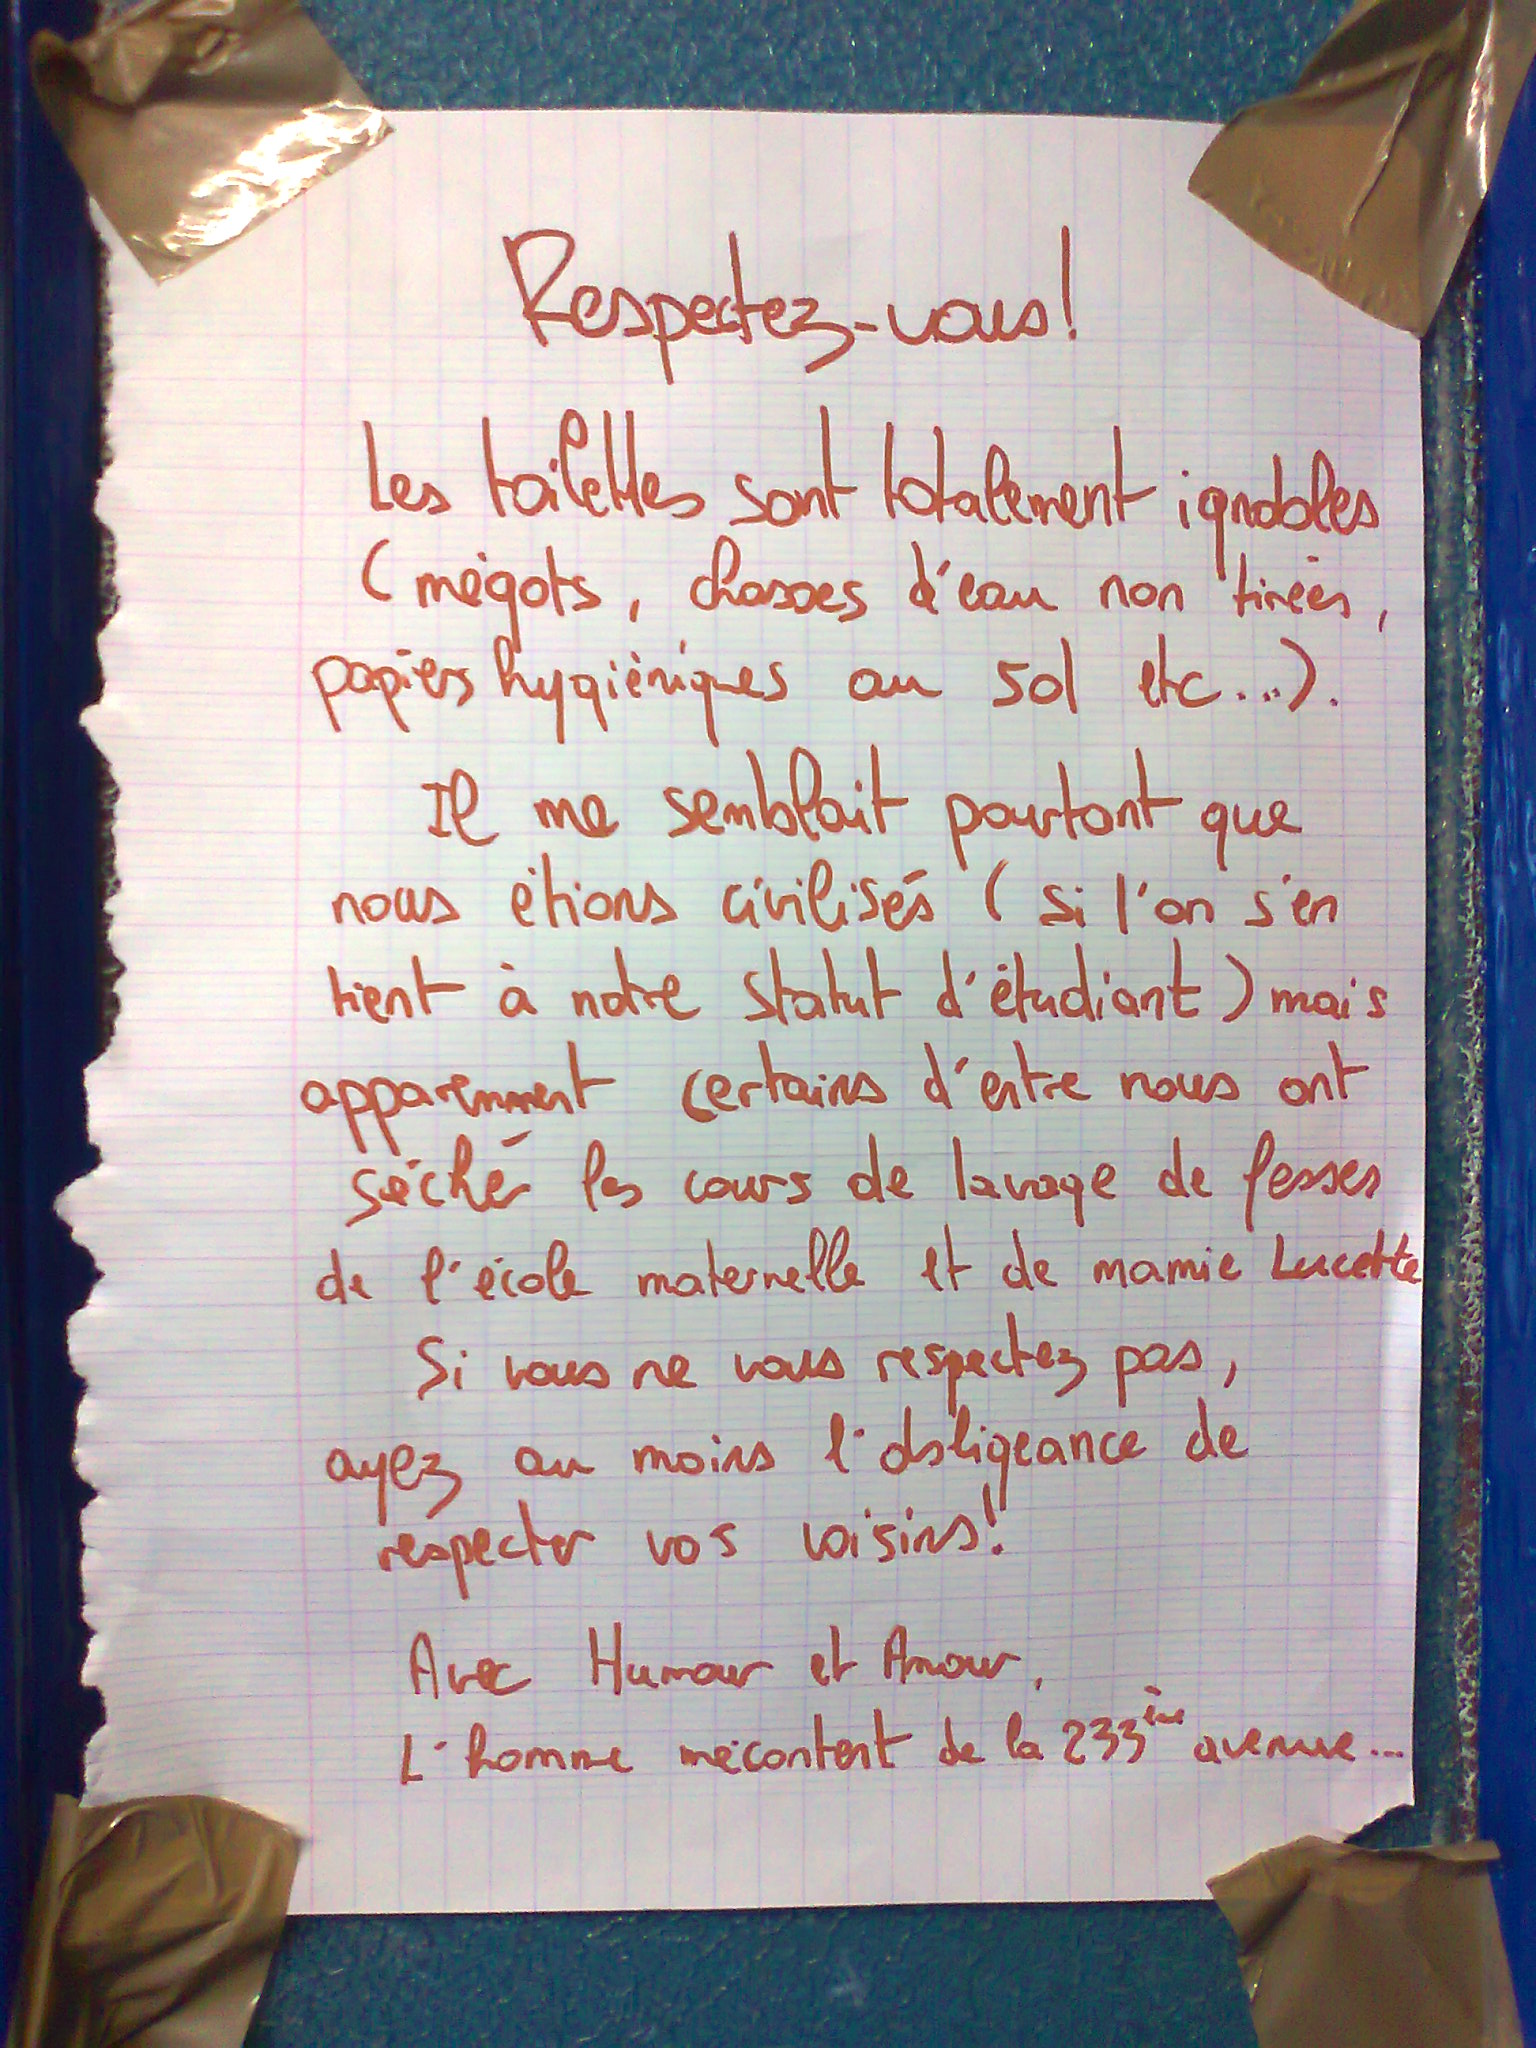 Respectez-vous!
Les toilettes sont totalement ignobles
(mégots, chasses d'eau non tirées,
papiers hygiéniques au sol etc...).
Il me semblait pourtant que
nous étions civilisés (si l'on s'en
tient à notre statut d'étudiant) mais
apparemment certains d'entre nous ont
séché les cours de lavage de fesses
de l'école maternelle et de mamie Lucette
Si vous ne vous respectez pas,
ayez au moins l'obligeance de
respecter vos voisins!
Avec Humour et Amour,
L'homme mécontent de la 233ème avenue...